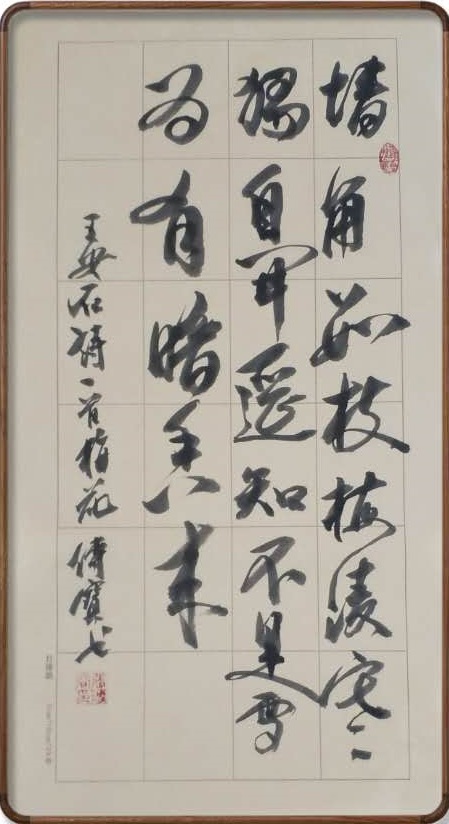 墙角数枝梅凌寒
獨自开遥知不是雪
为有暗香来
王安石诗一首梅花 傅寶书